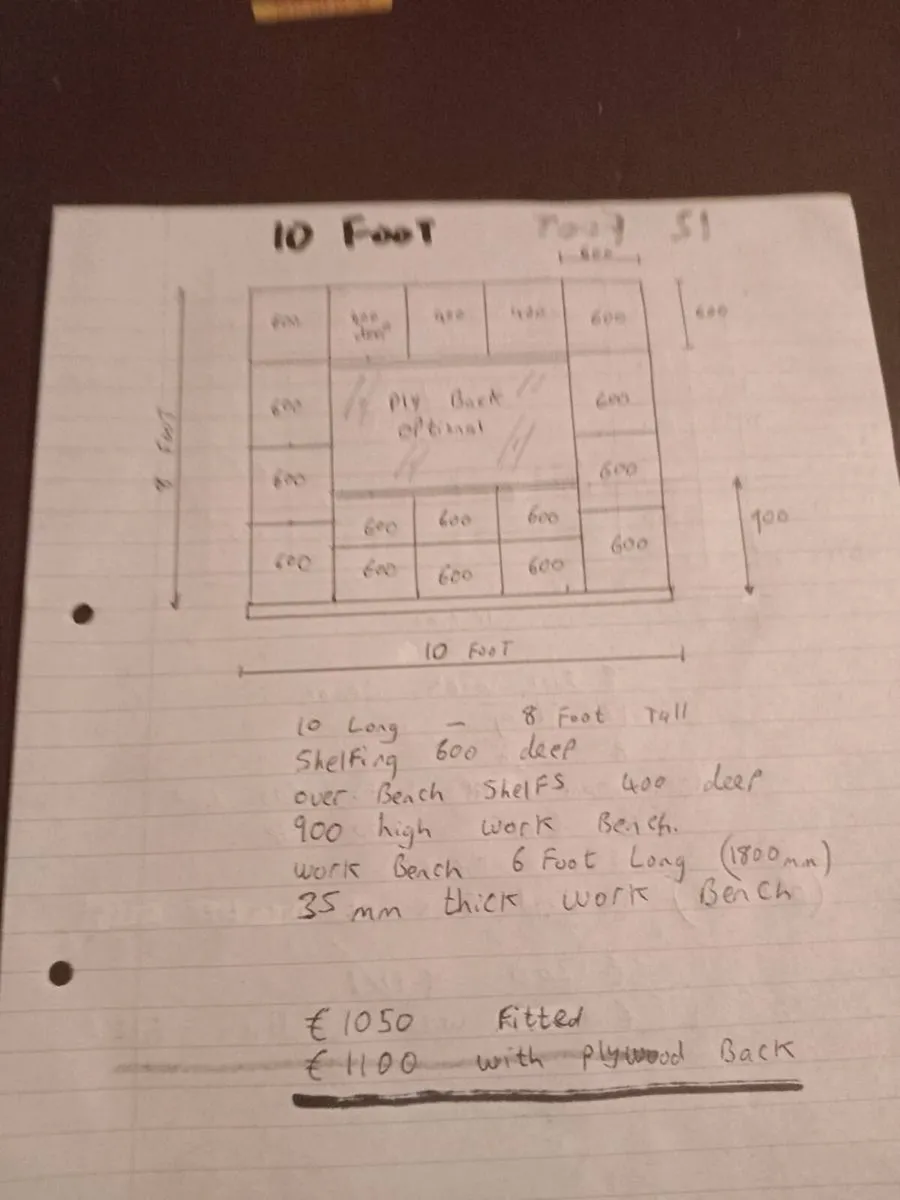 10 FOOT
600
600
600
400
400
600
8 FOOT
600
Ply Back
optimal
600
600
600
900
600
600
600
600
600
600
600
600
10 FOOT
10 Long - 8 Foot Tall
Shelfing 600 deep
over Bench Shelfs 400 deep
900 high work Bench.
work Bench 6 Foot Long (1800mm)
35 mm thick work Bench
€1050 Fitted
€1100 with plywood Back